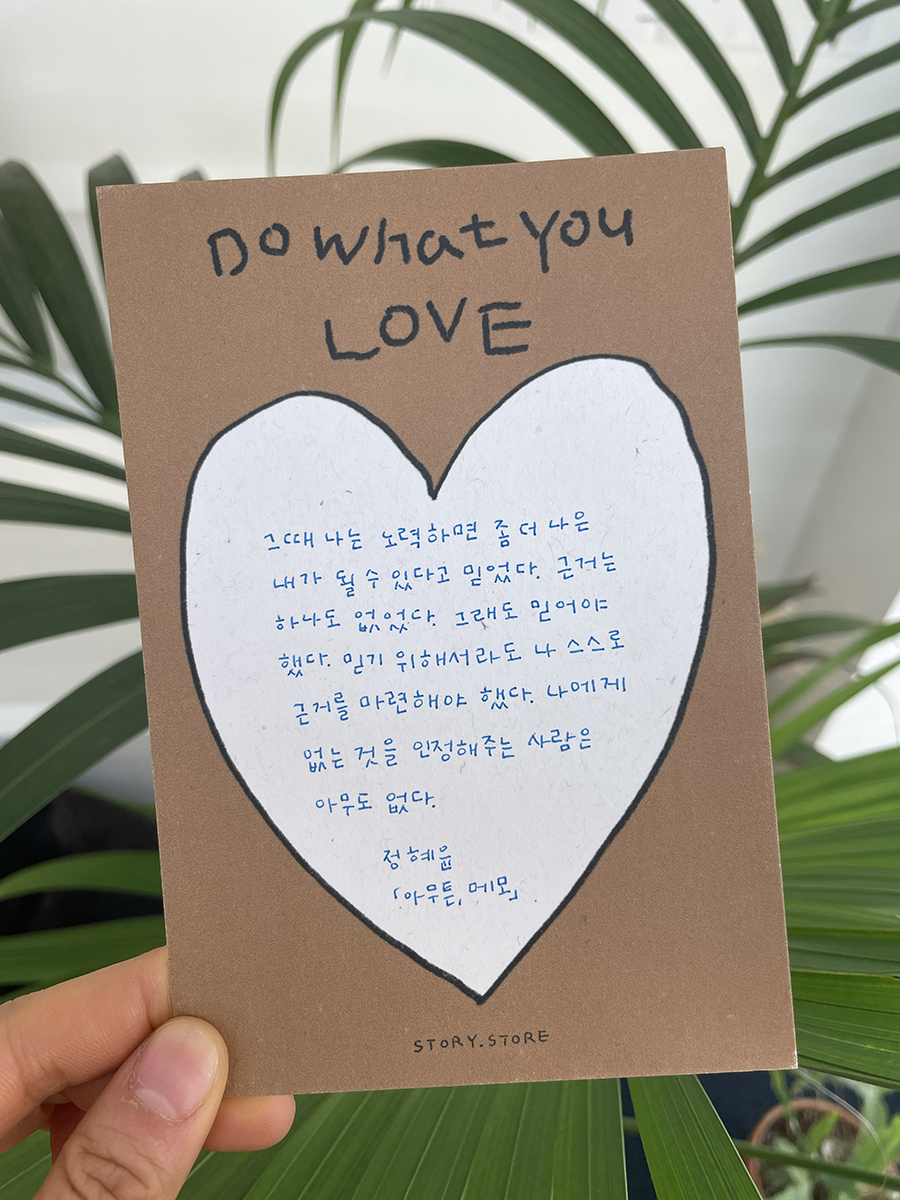 Do What You
LOVE
그때 나는 노력하면 좀 더 나은
내가 될 수 있다고 믿었다. 근거는
하나도 없었다. 그래도 믿어야
했다. 믿기 위해서라도 나 스스로
근거를 마련해야 했다. 나에게
없는 것을 인정해주는 사람은
아무도 없다.
정혜윤
「아무튼, 메모」
STORY.STORE